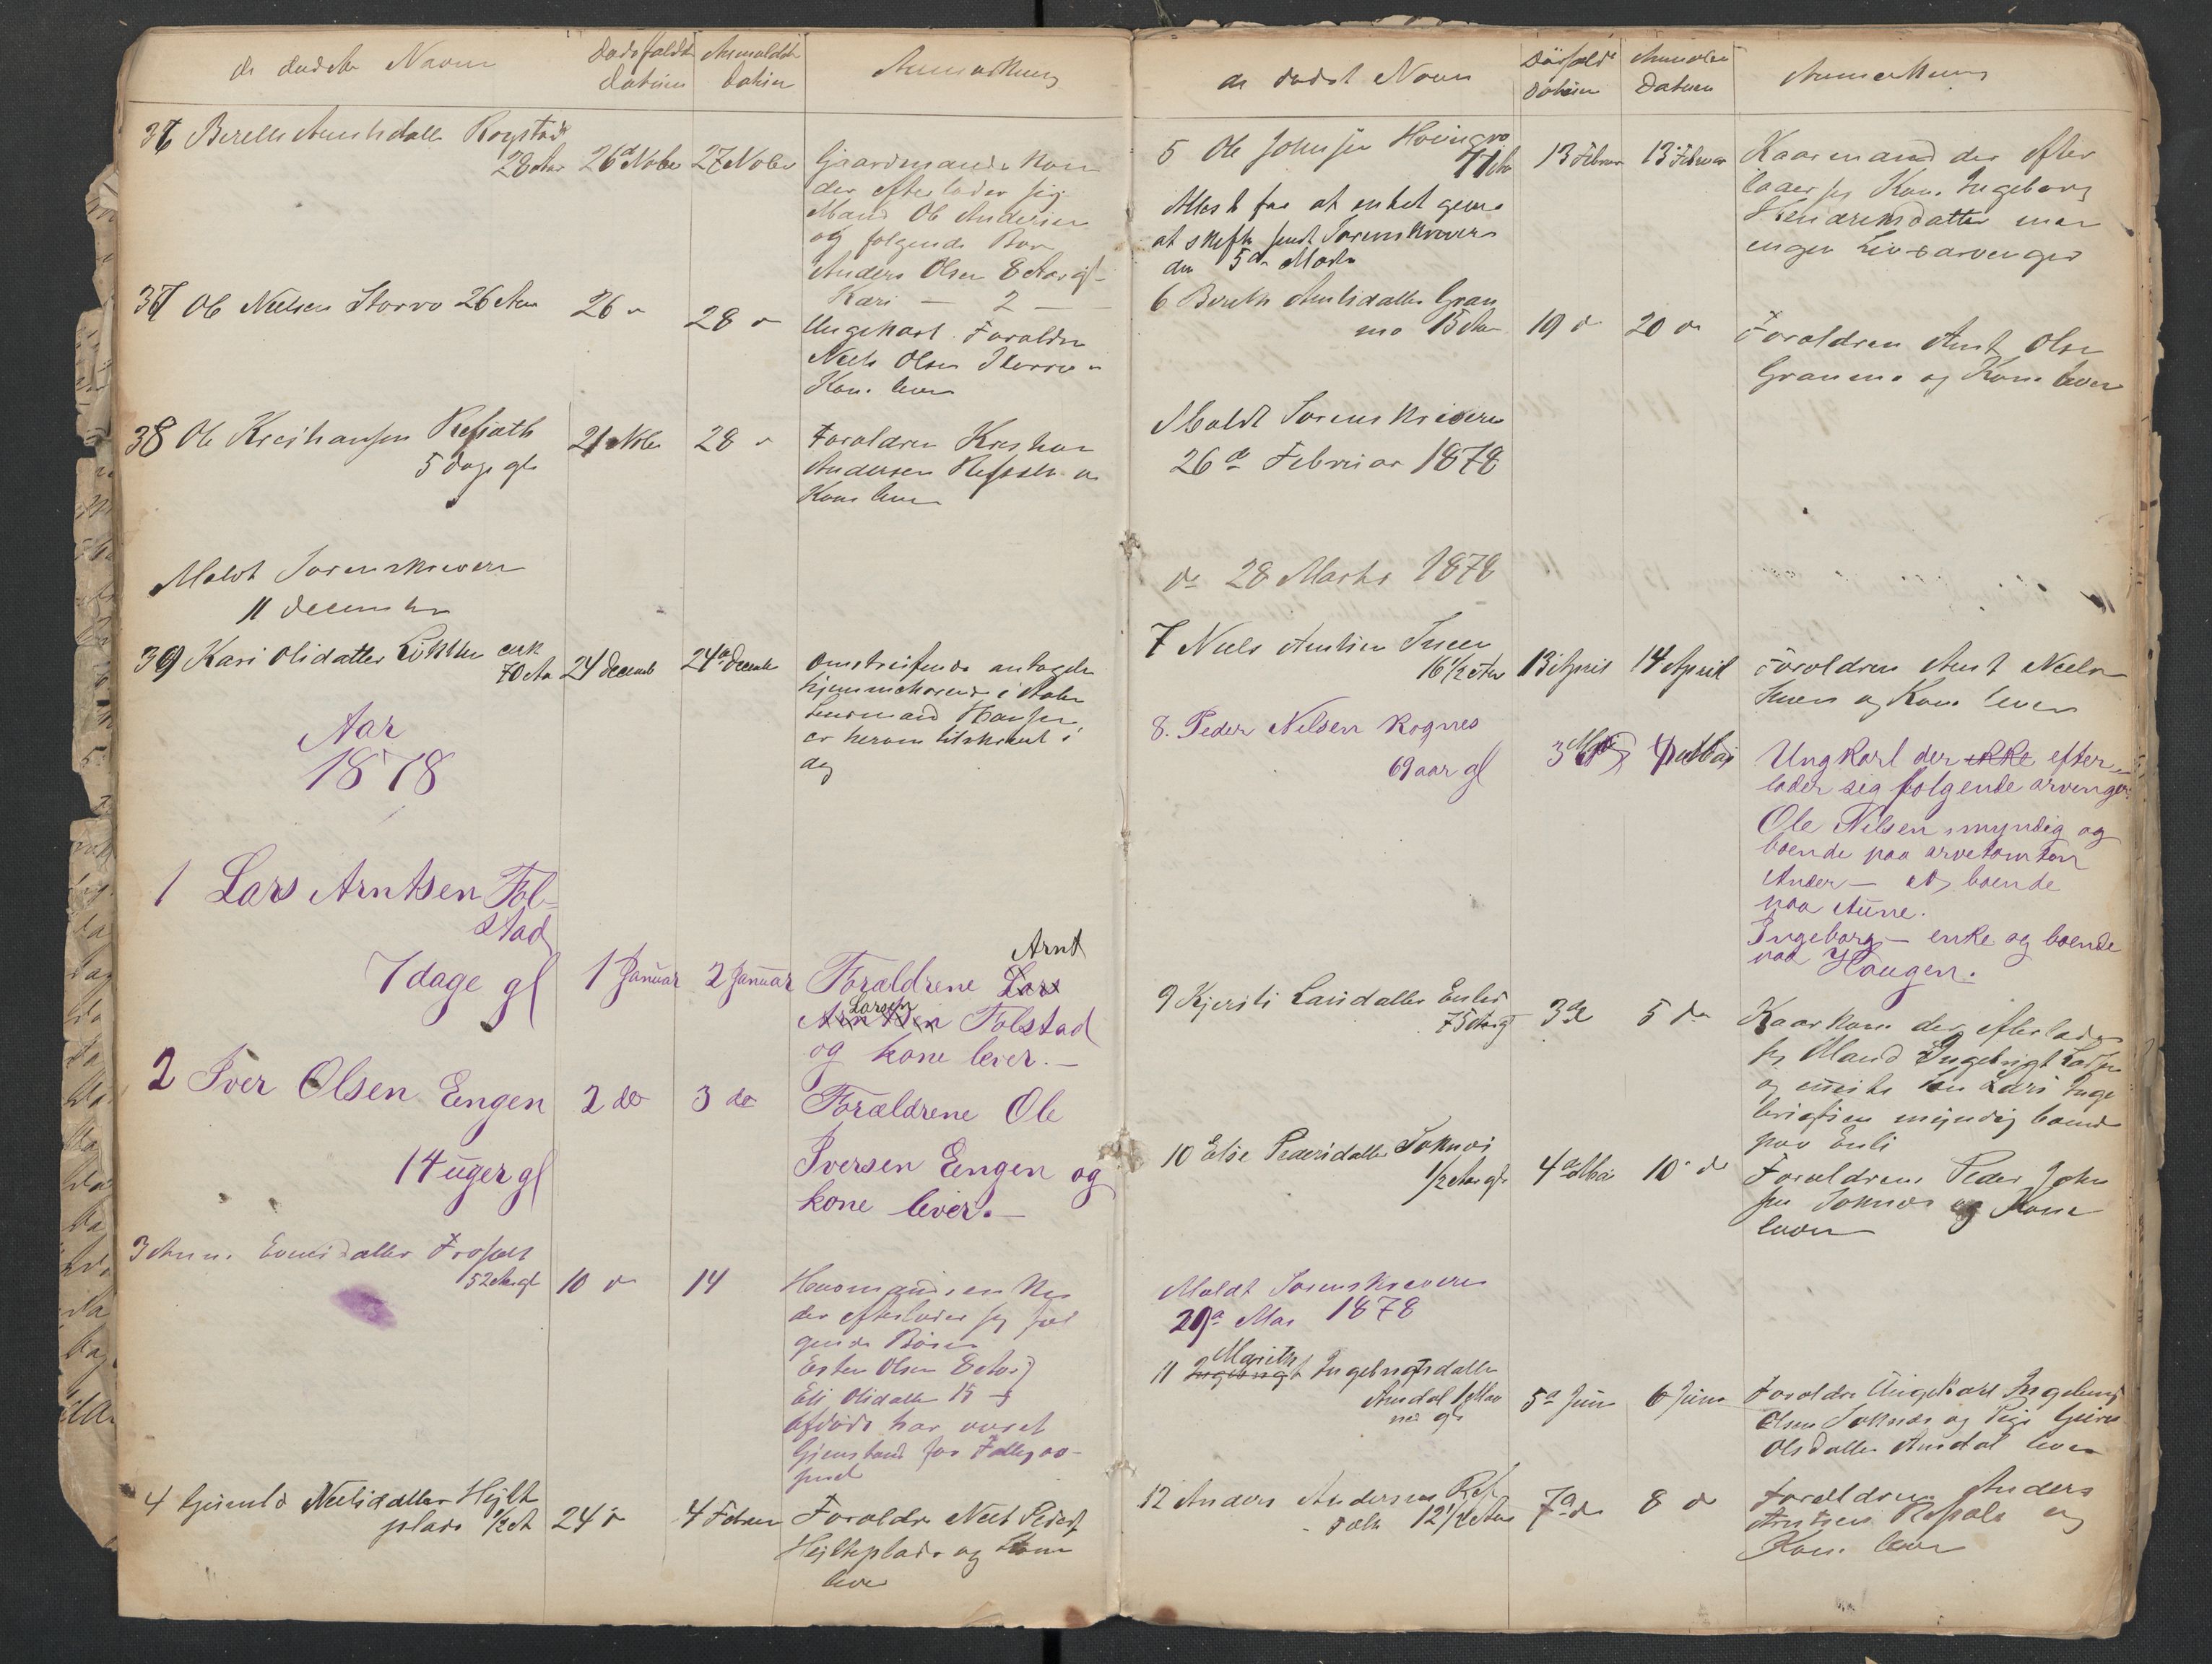 de dødes Navn
Dødsfaldets Datum
Anmeldels Datum
Anmærkning
36 Berethe Arntsdatter Rogstad
28 Aar
26de Nobr
27 Nobr
Gaardmands Kone
der efterlader sig
Mand Ole Andersen
og følgende Børn
Anders Olsen 8 Aar gl
Kari — 2 —
37 Ole Nielsen Storrø 26 Aar
26 "
28 "
Ungekarl Foraldre
Niels Olsen Storrø og
Kone lever
38 Ole Kristiansen Refsath
5 dage gl
21 Nobr
28 "
Foraldren Kristian
Andersen Refsath og
Kone lever
Meldt Sorenskriveren
11 December
39 Kari Olsdatter
70 Aar
24 Decemb
24de Decembr
omstreifende antagelig
hjemmehørende i
Lensmand Hansen
er herom tilskrevet i
dag
Aar
1878
1 Lars Arntsen Fol-
stad
7 dage gl
1 Januar
2 Januar
Arnt
Forældrene Lars
Larsen
Arntsen Folstad
og kone lever. —
2 Iver Olsen Engen
14 uger gl
2 do
3 do
Forældrene Ole
Iversen Engen og
kone lever. —
3 Anne Evensdatter Frøset
52 Aar gl
10 "
14
Huusmandsenke
der efterlader sig føl
gende Børn
Esten Olsen 8 Aar
Eli Olsdatter 15 —
Afdøde har været
Gjenstand for Fattigun-
4 Gunild Nielsdatter Hejlt
plads 1/2 A
24 "
4 Februar
Foraldre Niels Peders
Hejltplads og Kone
lever
de dødes Navn
Dødsfalds Datum
Anmeldes Datum
Anmerkning
5 Ole Johnsen
71 Aar
13 Februar
13 Februar
Kaarmand der efter
lader sig Kone Ingeborg
Henriksdatter men
ingen Livsarvinger
Attest for at enken gives
at skifte sendt Sorenskriveren
den 5de Marts
6 Berethe Arntsdatter Gran
mo 15 Aar
19 do
20 do
Foraldren Arnt Olsen
Granmo og Kone lever
Meldt Sorenskriveren
26de Februar 1878
do 28 Marts 1878
7 Niels Arntsen Sneen
16 1/2 Aar
13 April
14 April
Foraldren Arnt Nielsen
Sneen og Kone lever
8. Peder Nilsen Rognes
69 aar gl
3 Mai
4 Mai
Ungkarl der ikke efter-
lader sig følgende arvinger
Ole Nilsen, myndig og
boende paa arvetomten
Ander — do, boende
paa Aune.
Ingeborg — enke og boende
paa Haugen.
9 Kjersti Larsdatter Enlid
75 Aar gl
3de
5 do
Kaarkone der efterlader
sig Mand Ingebrigt Larsen
og eneste Søn Lars Inge
brigtsen myndig boende
paa Enli
10 Else Pedersdatter Soknæs
1/2 Aar gl
4de Mai
10 do
Foraldrene Peder John
sen Soknæs og Kone
lever
Meldt Sorenskriveren
29de Mai 1878
Marith
11 Ingebrigt Ingebrigtsdatter
Amdal 1 Maa
ned gl
5te Juni
6 Juni
Foraldre Ungekarl Ingebrigt
Olsen Soknæs og Pige Guru
Olsdatter Amdal lever
12 Anders Andersen Ref
sath 12 1/2 Aar
7de do
8 do
Forældrene Anders
Arntsen Refsath og
Kone lever